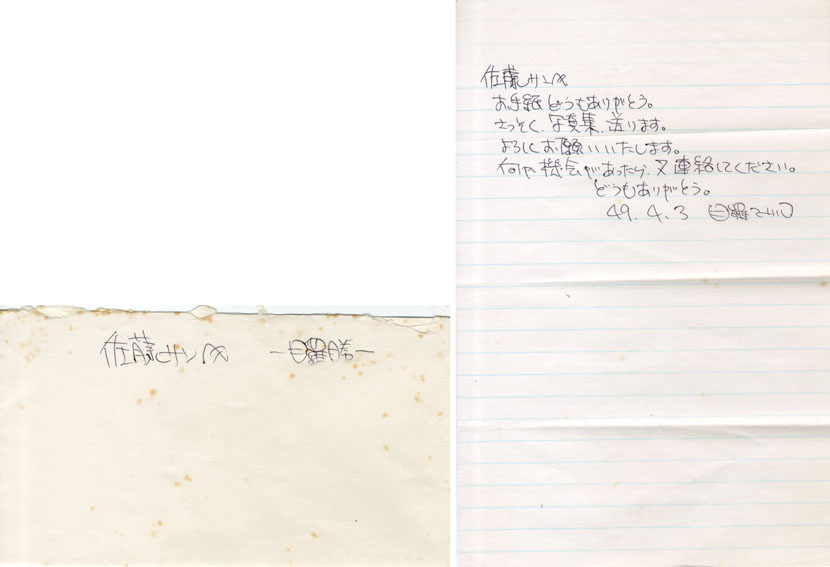 佐藤サンへ
ー目羅勝ー
佐藤サンへ
お手紙どうもありがとう。
さっそく、写真集、送ります。
よろしくお願いいたします。
何か機会があったら、又連絡してください。
どうもありがとう。
49.4.3 目羅